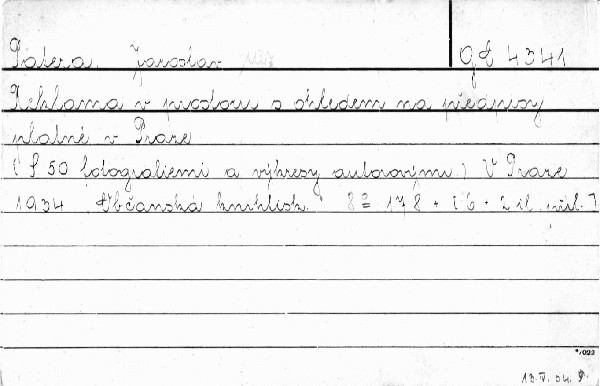 Patera, Jaroslav Gd 4341
Reklama v prostoru s ohledem na předpisy
platné v Praze
(S 50 fotografiemi a výkresy autorovými.) V Praze
1934. Občanská knihtisk. 8º 178 + [6 + 2 il. příl.]
*/022
13.IV.54.